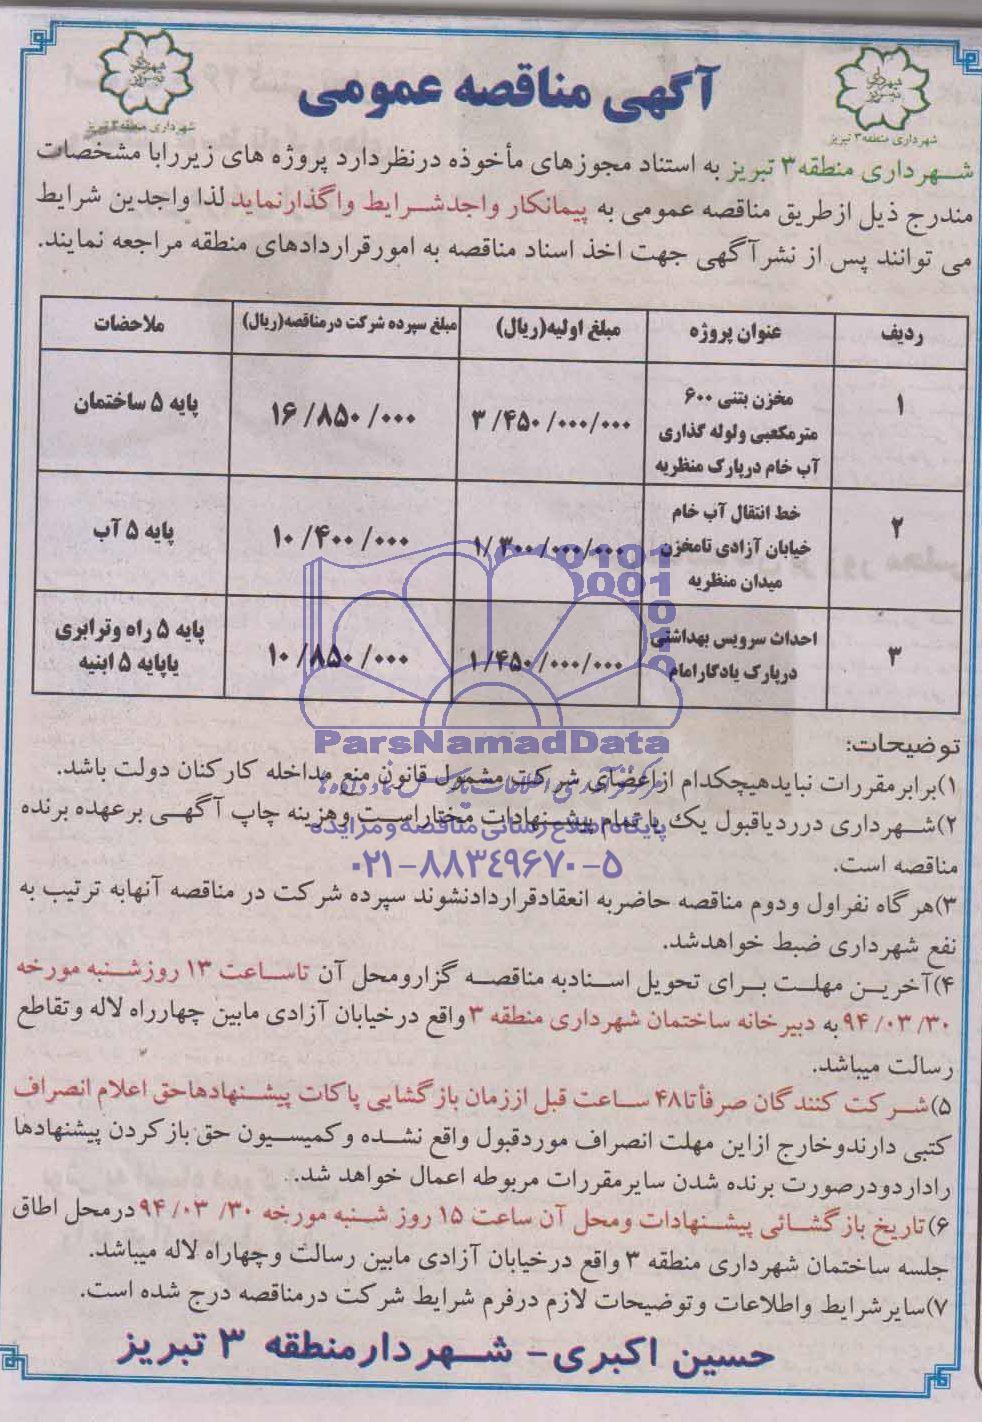 آگهی مناقصه عمومی
شهرداری منطقه۳ تبریز
شهرداری منطقه۳ تبریز
شهرداری منطقه۳ تبریز به استناد مجوزهای مأخوذه درنظردارد پروژه های زیررابا مشخصات
مندرج ذیل ازطریق مناقصه عمومی به پیمانکار واجدشرایط واگذارنماید لذا واجدین شرایط
می توانند پس از نشرآگهی جهت اخذ اسناد مناقصه به امورقراردادهای منطقه مراجعه نمایند.
ردیف عنوان پروژه مبلغ اولیه(ریال) مبلغ سپرده شرکت درمناقصه(ریال) ملاحضات
۱ مخزن بتنی ۶۰۰ ۳/۴۵۰/۰۰۰/۰۰۰ ۱۶/۸۵۰/۰۰۰ پایه ۵ ساختمان
مترمکعبی ولوله گذاری
آب خام درپارک منظریه
۲ خط انتقال آب خام ۱/۳۰۰/۰۰۰/۰۰۰ ۱۰/۴۰۰/۰۰۰ پایه ۵ آب
خیابان آزادی تامخزن
میدان منظریه
۳ احداث سرویس بهداشتی ۱/۴۵۰/۰۰۰/۰۰۰ ۱۰/۸۵۰/۰۰۰ پایه ۵ راه وترابری
درپارک یادگارامام یاپایه ۵ ابنیه
ParsNamadData
پایگاه اطلاع رسانی مناقصه و مزایده
۰۲۱-۸۸۳۴۹۶۷۰-۵
توضیحات:
۱)برابرمقررات نبایدهیچکدام ازاعضای شرکت مشمول قانون منع مداخله کارکنان دولت باشد.
۲)شهرداری درردیاقبول یک یا تمام پیشنهادات مختاراست وهزینه چاپ آگهی برعهده برنده
مناقصه است.
۳)هرگاه نفراول ودوم مناقصه حاضربه انعقادقراردادنشوند سپرده شرکت در مناقصه آنهابه ترتیب به
نفع شهرداری ضبط خواهدشد.
۴)آخرین مهلت برای تحویل اسنادبه مناقصه گزارومحل آن تاساعت ۱۳ روزشنبه مورخه
۹۴/۰۳/۳۰ به دبیرخانه ساختمان شهرداری منطقه ۳ واقع درخیابان آزادی مابین چهارراه لاله وتقاطع
رسالت میباشد.
۵)شرکت کنندگان صرفأتا۴۸ ساعت قبل اززمان بازگشایی پاکات پیشنهادهاحق اعلام انصراف
کتبی دارندوخارج ازاین مهلت انصراف موردقبول واقع نشده وکمیسیون حق بازکردن پیشنهادها
راداردودرصورت برنده شدن سایرمقررات مربوطه اعمال خواهد شد.
۶)تاریخ بازگشائی پیشنهادات ومحل آن ساعت ۱۵ روز شنبه مورخه ۹۴/۰۳/۳۰ درمحل اطاق
جلسه ساختمان شهرداری منطقه ۳ واقع درخیابان آزادی مابین رسالت وچهاراه لاله میباشد.
۷)سایرشرایط واطلاعات وتوضیحات لازم درفرم شرایط شرکت درمناقصه درج شده است.
حسین اکبری- شهردارمنطقه ۳ تبریز